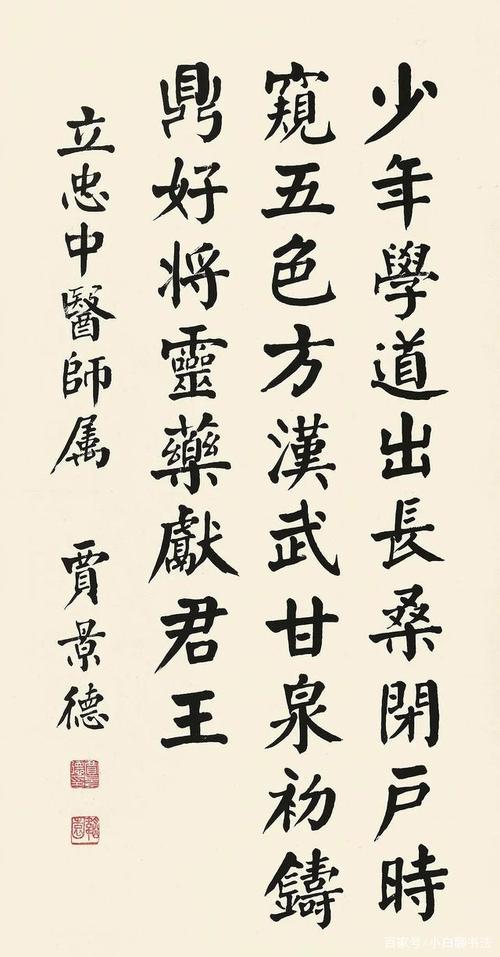 少年學道出長桑閑戶時
窺五色方漢武甘泉初鑄
鼎好將靈藥獻君王
立忠中醫師属
賈景德
百家号/小白聊书法